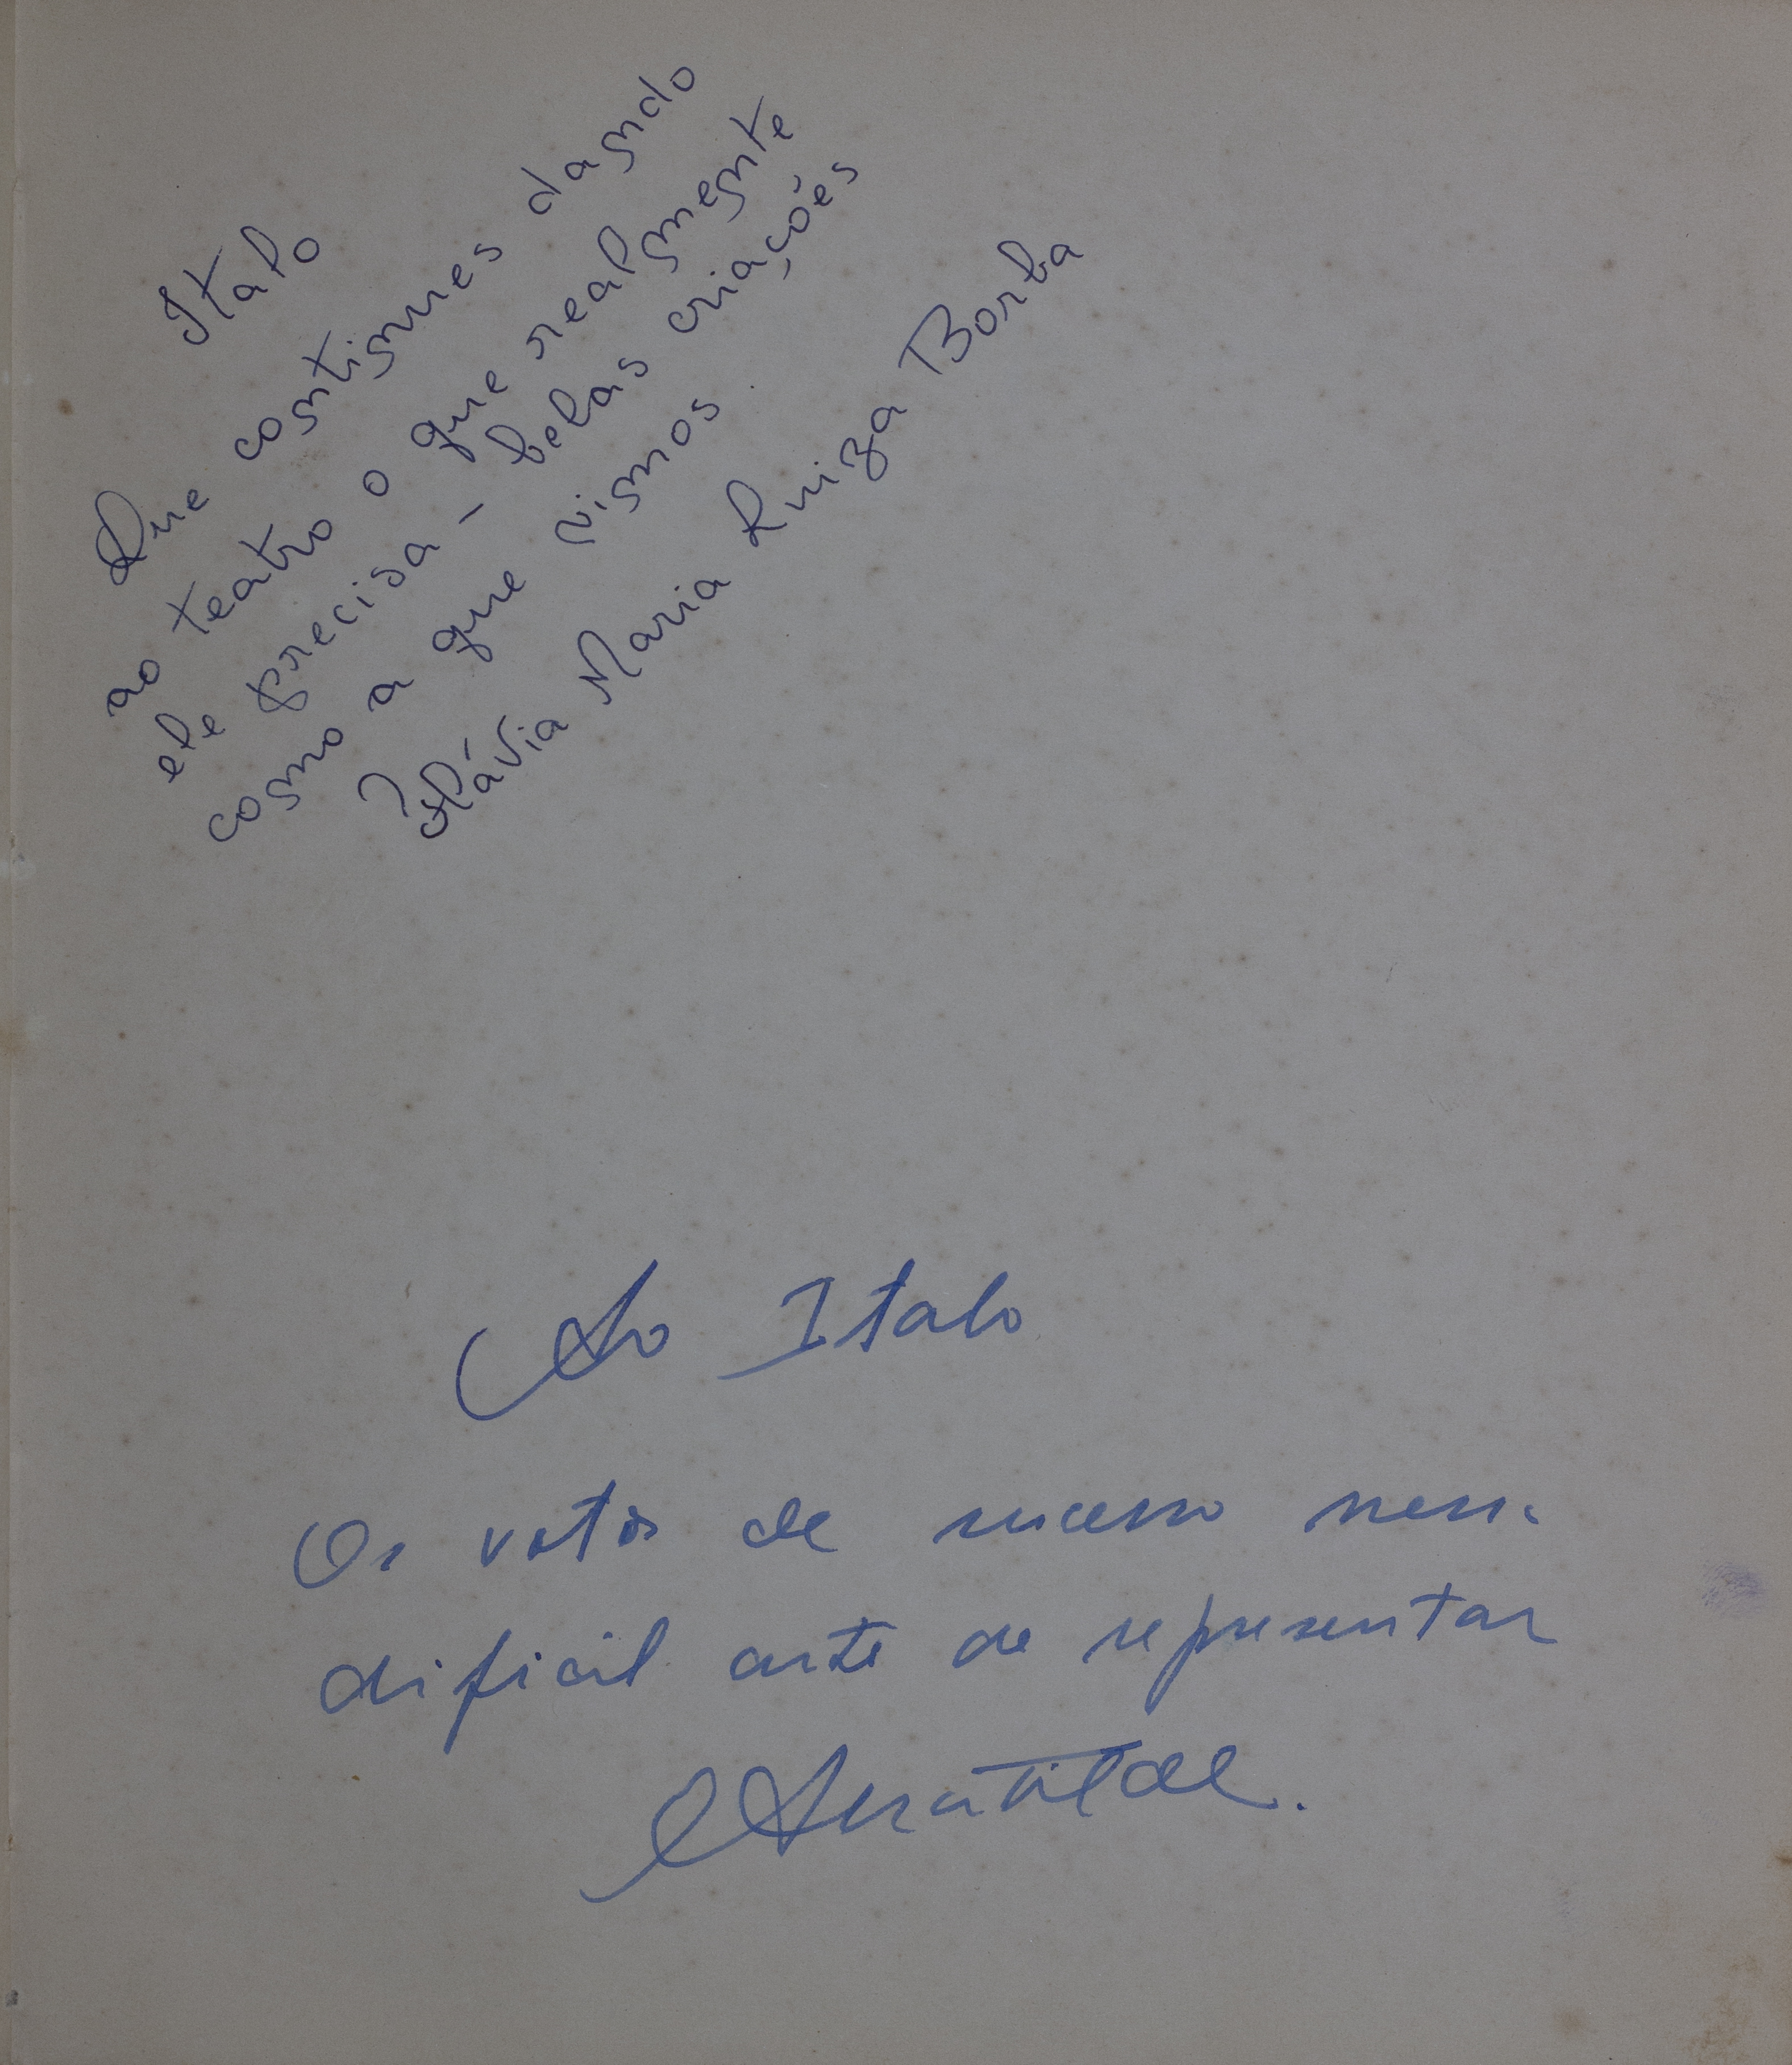 Italo
Que continues dando
ao teatro o que realmente
ele precisa - belas criações
como a que vimos
Flávia Maria Luiza Borba
Ao Italo
Os votos de sucesso nessa
dificil arte de representar